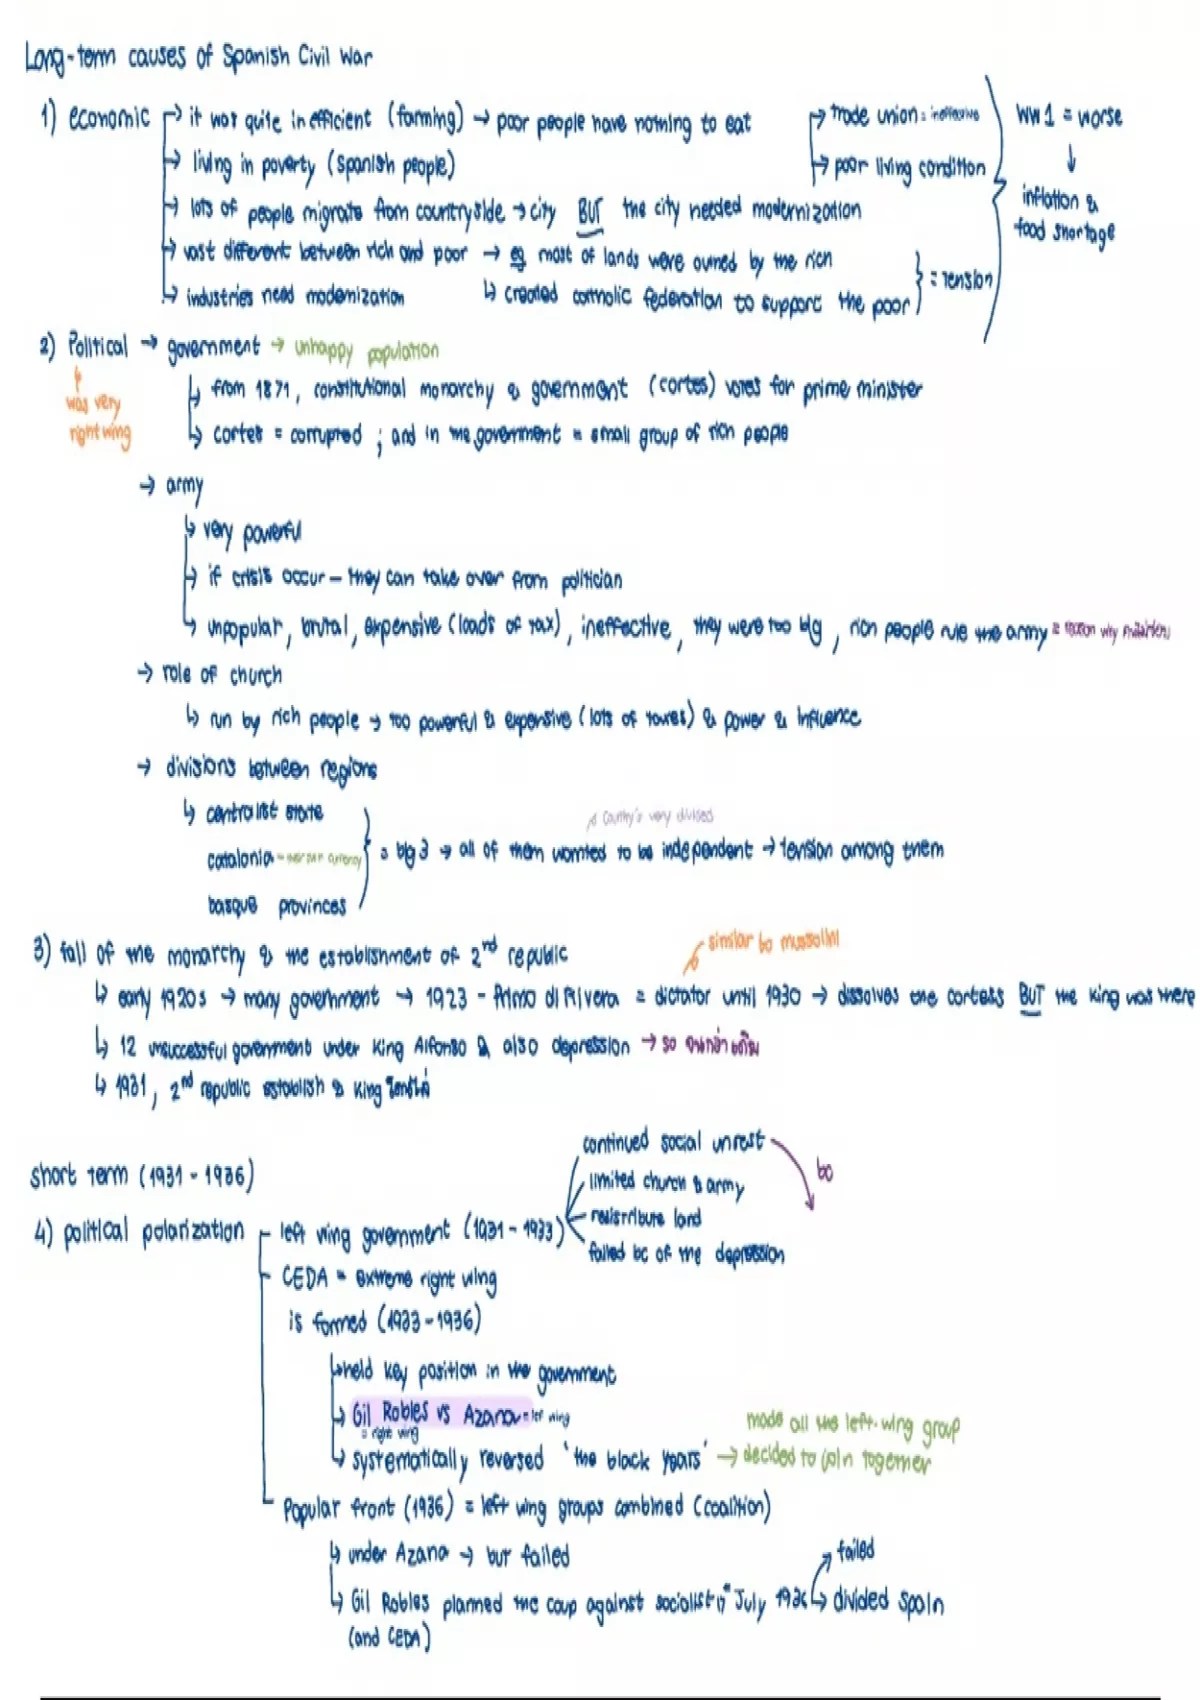 Long-term causes of Spanish Civil War
1) economic → it was quite inefficient (farming) → poor people have nothing to eat → trade union = ineffective WW1 = worse
→ living in poverty (spanish people) → poor living condition ↓
→ lots of people migrate from countryside → city BUT the city needed modernization inflation & food shortage
→ vast different between rich and poor → eg most of lands were owned by the rich
→ industries need modernization ↳ created catholic federation to support the poor } = tension
2) Political → government → unhappy population
was very right wing
↳ from 1871, constitutional monarchy & government (cortes) votes for prime minister
↳ cortes = corrupted ; and in the government = small group of rich people
→ army
↳ very powerful
→ if crisis occur - they can take over from politician
↳ unpopular, brutal, expensive (loads of tax), ineffective, they were too big, rich people rule the army = reason why
→ role of church
↳ run by rich people → too powerful & expensive (lots of taxes) & power & influence
→ divisions between regions
↳ centralist state
country's very divided
catalonia = big 3 → all of them wanted to be independent → tension among them
basque provinces
3) fall of the monarchy & the establishment of 2nd republic
similar to mussolini
↳ early 1920s → many government → 1923 - Primo di Rivera = dictator until 1930 → dissolves the cortess BUT the king was there
↳ 12 unsuccessful government under King Alfonso & also depression → so
↳ 1931, 2nd republic establish & king
short term (1931 - 1936)
4) political polarization
left wing government (1931 - 1933)
continued social unrest
limited church & army
redistribute land
failed bc of the depression
bc
CEDA = extreme right wing
is formed (1933 - 1936)
↳ held key position in the government
→ Gil Robles vs Azana = left wing
= right wing
↳ systematically reversed 'the black years' → made all the left-wing group decided to join together
Popular front (1936) = left wing groups combined (coalition)
↳ under Azana → but failed
↳ Gil Robles planned the coup against socialist 17th July 1936 → failed
↳ divided spain
(and CEDA)